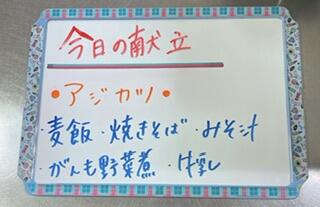 今日の献立
•アジカツ•
麦飯・焼きそば・みそ汁
・がんも野菜煮・牛乳